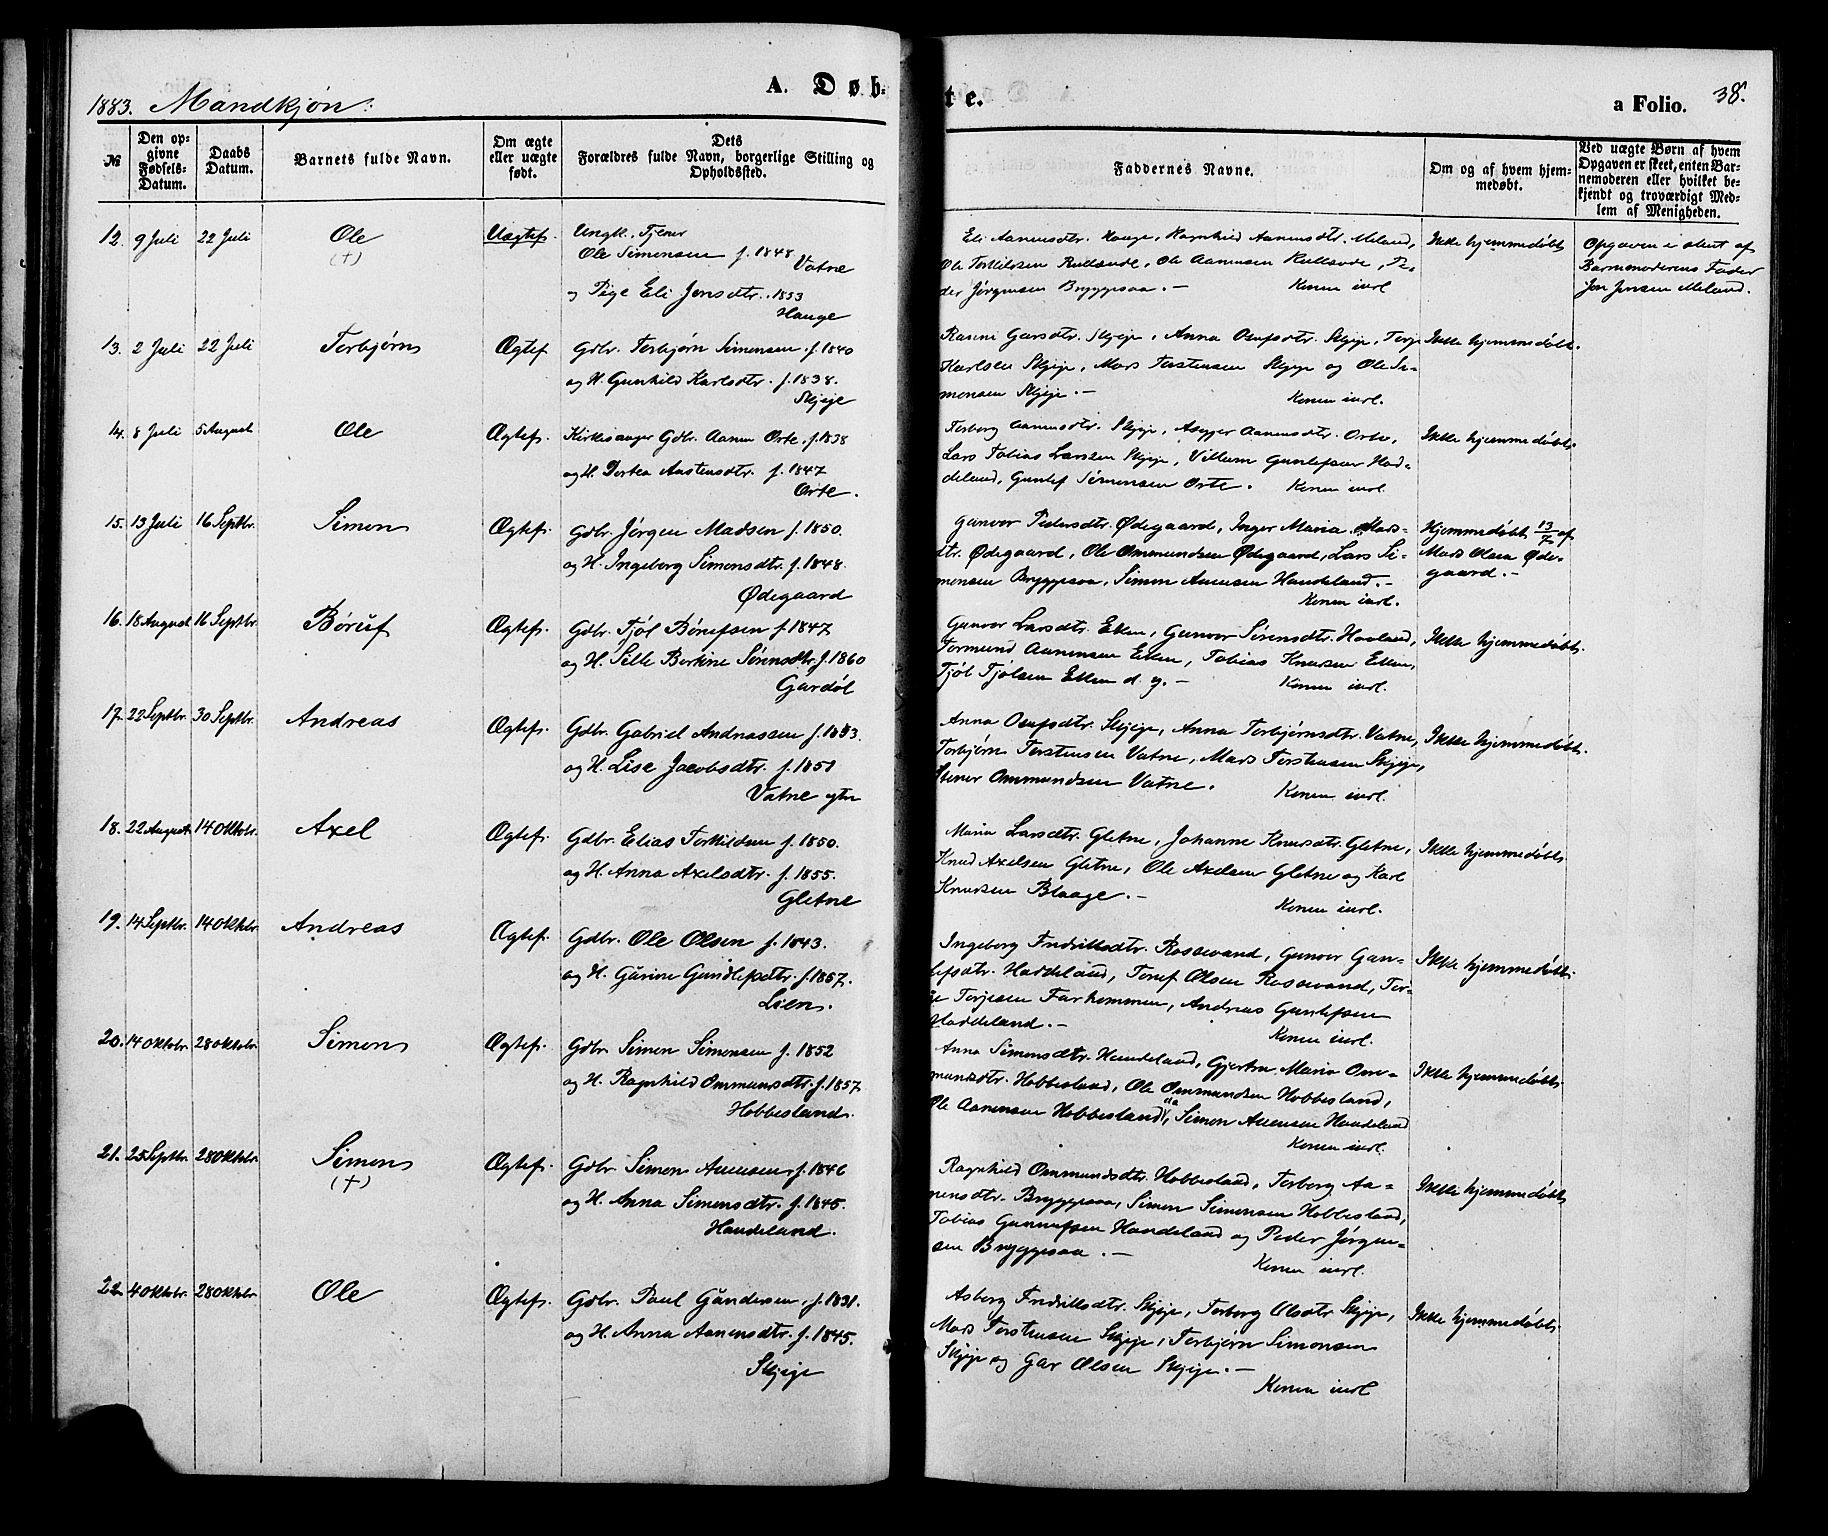 1883. Mandkjøn:
A. Døbte.
a Folio. 38.
№
Den opgivne Fødsels-Datum.
Daabs Datum.
Barnets fulde Navn.
Om ægte eller uægte født.
Dets Forældres fulde Navn, borgerlige Stilling og Opholdssted.
Faddernes Navne.
Om og af hvem hjemmedøbt.
Ved uægte Børn af hvem Opgaven er skeet, enten Barnemoderen eller hvilket bekjendt og troværdigt Medlem af Menigheden.
12. 9 Juli 22 Juli Ole (+) Uægtef. Ungk. Tjener
Ole Simonsen f. 1848 Vatne
og Pige Eli Jonsdtr. 1853
Hauge
Eli Aanensdtr. Hauge, Ragnhild Aanensdtr. Meland,
Ole Terkelsen, Ole Aanensen, Pe-
der Jørgensen Bryggesaa. — Konen inrl
Ikke hjemmedøbt
Opgaven er skeet af
Barnemoderens Fader
Jon Jensen Meland.
13. 2 Juli 22 Juli Torbjørn Ægtef Gdbr. Torbjørn Simonsen f. 1840
og H. Gunhild Karlsdtr. f. 1838.
Skjeje
Rasmi Garsdtr. Skjeje, Anna Osufsdtr. Skjeje, Terje
Karlsen Skjeje, Mads Torstensen Skjeje og Ole Si-
monsen Skjeje. — Konen inrl.
Ikke hjemmedøbt.
14. 8 Juli 5 August Ole Ægtef. Kirkesanger Gdbr. Aanen Orte, f. 1838
og H. Dortea Austensdtr. f. 1847
Orte.
Torborg Aanensdtr. Skjeje, Aanensdtr. Orte,
Lars Tobias Larsen Skjeje, Villum Guntefsen Had-
deland, Guntef Simonsen Orte. Konen inrl
Ikke hjemmedøbt.
15. 13 Juli 16 Septbr. Simon Ægtef. Gdbr. Jørgen Madsen f. 1850.
og H. Ingeborg Simonsdtr. f. 1848.
Ødegaard
Gunvor Pedersdtr. Ødegaard, Inger Maria Mads-
dtr. Ødegaard, Ole Ommundsen Ødegaard, Lars Si-
monsen Bryggesaa, Simon Anensen Handeland. —
Konen inrl.
Hjemmedøbt 13/7 af
Mads Olsen Øde-
gaard. —
16. 18 August 16 Septbr. Børuf Ægtef. Gdbr. Tjøl Børufsen f. 1847
og H. Sille Berkine Sørensdtr. f. 1860
Gardøl
Gunvor Larsdtr. Eken, Gunvor Sørensdtr. Hovland,
Tormund Aanensen Eken, Tobias Knudsen Eken,
Tjøl Tjølsen Eken d. y. — Konen inrl.
Ikke hjemmedøbt.
17. 22 Septbr. 30 Septbr. Andreas Ægtef. Gdbr. Gabriel Andreassen f. 1853.
og H. Lise Jacobsdtr. f. 1851
Vatne ytre
Anna Osufsdtr. Skjeje, Anna Torbjørnsdtr. Vatne,
Torbjørn Torstensen Vatne, Mads Torstensen Skjeje,
Stener Ommundsen Vatne. Konen inrl.
Ikke hjemmedøbt.
18. 22 August 14 Oktobr. Axel Ægtef. Gdbr. Elias Torkildsen f. 1850.
og H. Anna Axelsdtr. f. 1855.
Gletne
Maria Larsdtr. Gletne, Johanne Knudsdtr. Gletne,
Knud Axelsen Gletne, Ole Axelsen Gletne og Karl
Knudsen Blaage. — Konen inrl.
Ikke hjemmedøbt.
19. 14 Septbr. 14 Oktobr. Andreas Ægtef. Gdbr. Ole Olsen f. 1843.
og H. Gurine Gundlefsdtr. f. 1857.
Lien.
Ingeborg Fredriksdtr. Rossevand, Gunvor Gun-
lefsdtr. Haddeland, Tonef Olsen Rossevand, Ter-
je Terjesen Farkommen, Andreas Guntefsen
Haddeland. — Konen inrl.
Ikke hjemmedøbt.
20. 14 Oktobr. 28 Oktobr. Simon Ægtef. Gdbr. Simon Simonsen f. 1852
og H. Ragnhild Ommundsdtr. f. 1857.
Hobbesland.
Anna Simonsdtr. Handeland, Gjertru Maria Om-
mundsdtr. Hobbesland, Ole Ommundsen Hobbesland,
Ole Aanensen Hobbesland, Simon Anensen Handeland
Konen inrl.
Ikke hjemmedøbt.
21. 25 Septbr. 28 Oktobr. Simon (+) Ægtef. Gdbr. Simon Anensen f. 1846
og H. Anna Simonsdtr. f. 1845.
Handeland.
Ragnhild Ommundsdtr. Hobbesland, Torborg Aa-
nensdtr. Bryggesaa, Simon Simonsen Hobbesland,
Tobias Gunnufsen Handeland og Peder Jørgen-
sen Bryggesaa. — Konen inrl.
Ikke hjemmedøbt
22. 4 Oktobr. 28 Oktobr. Ole Ægtef. Gdbr. Paul Gundersen f. 1831.
og H. Anna Aanensdtr. f. 1845.
Skjeje
Asborg Fredriksdtr. Skjeje, Torborg Olsdtr Skjeje,
Mads Torstensen Skjeje, Torbjørn Simonsen
Skjeje og Gar Olsen Skjeje. —
Konen inrl
Ikke hjemmedøbt.